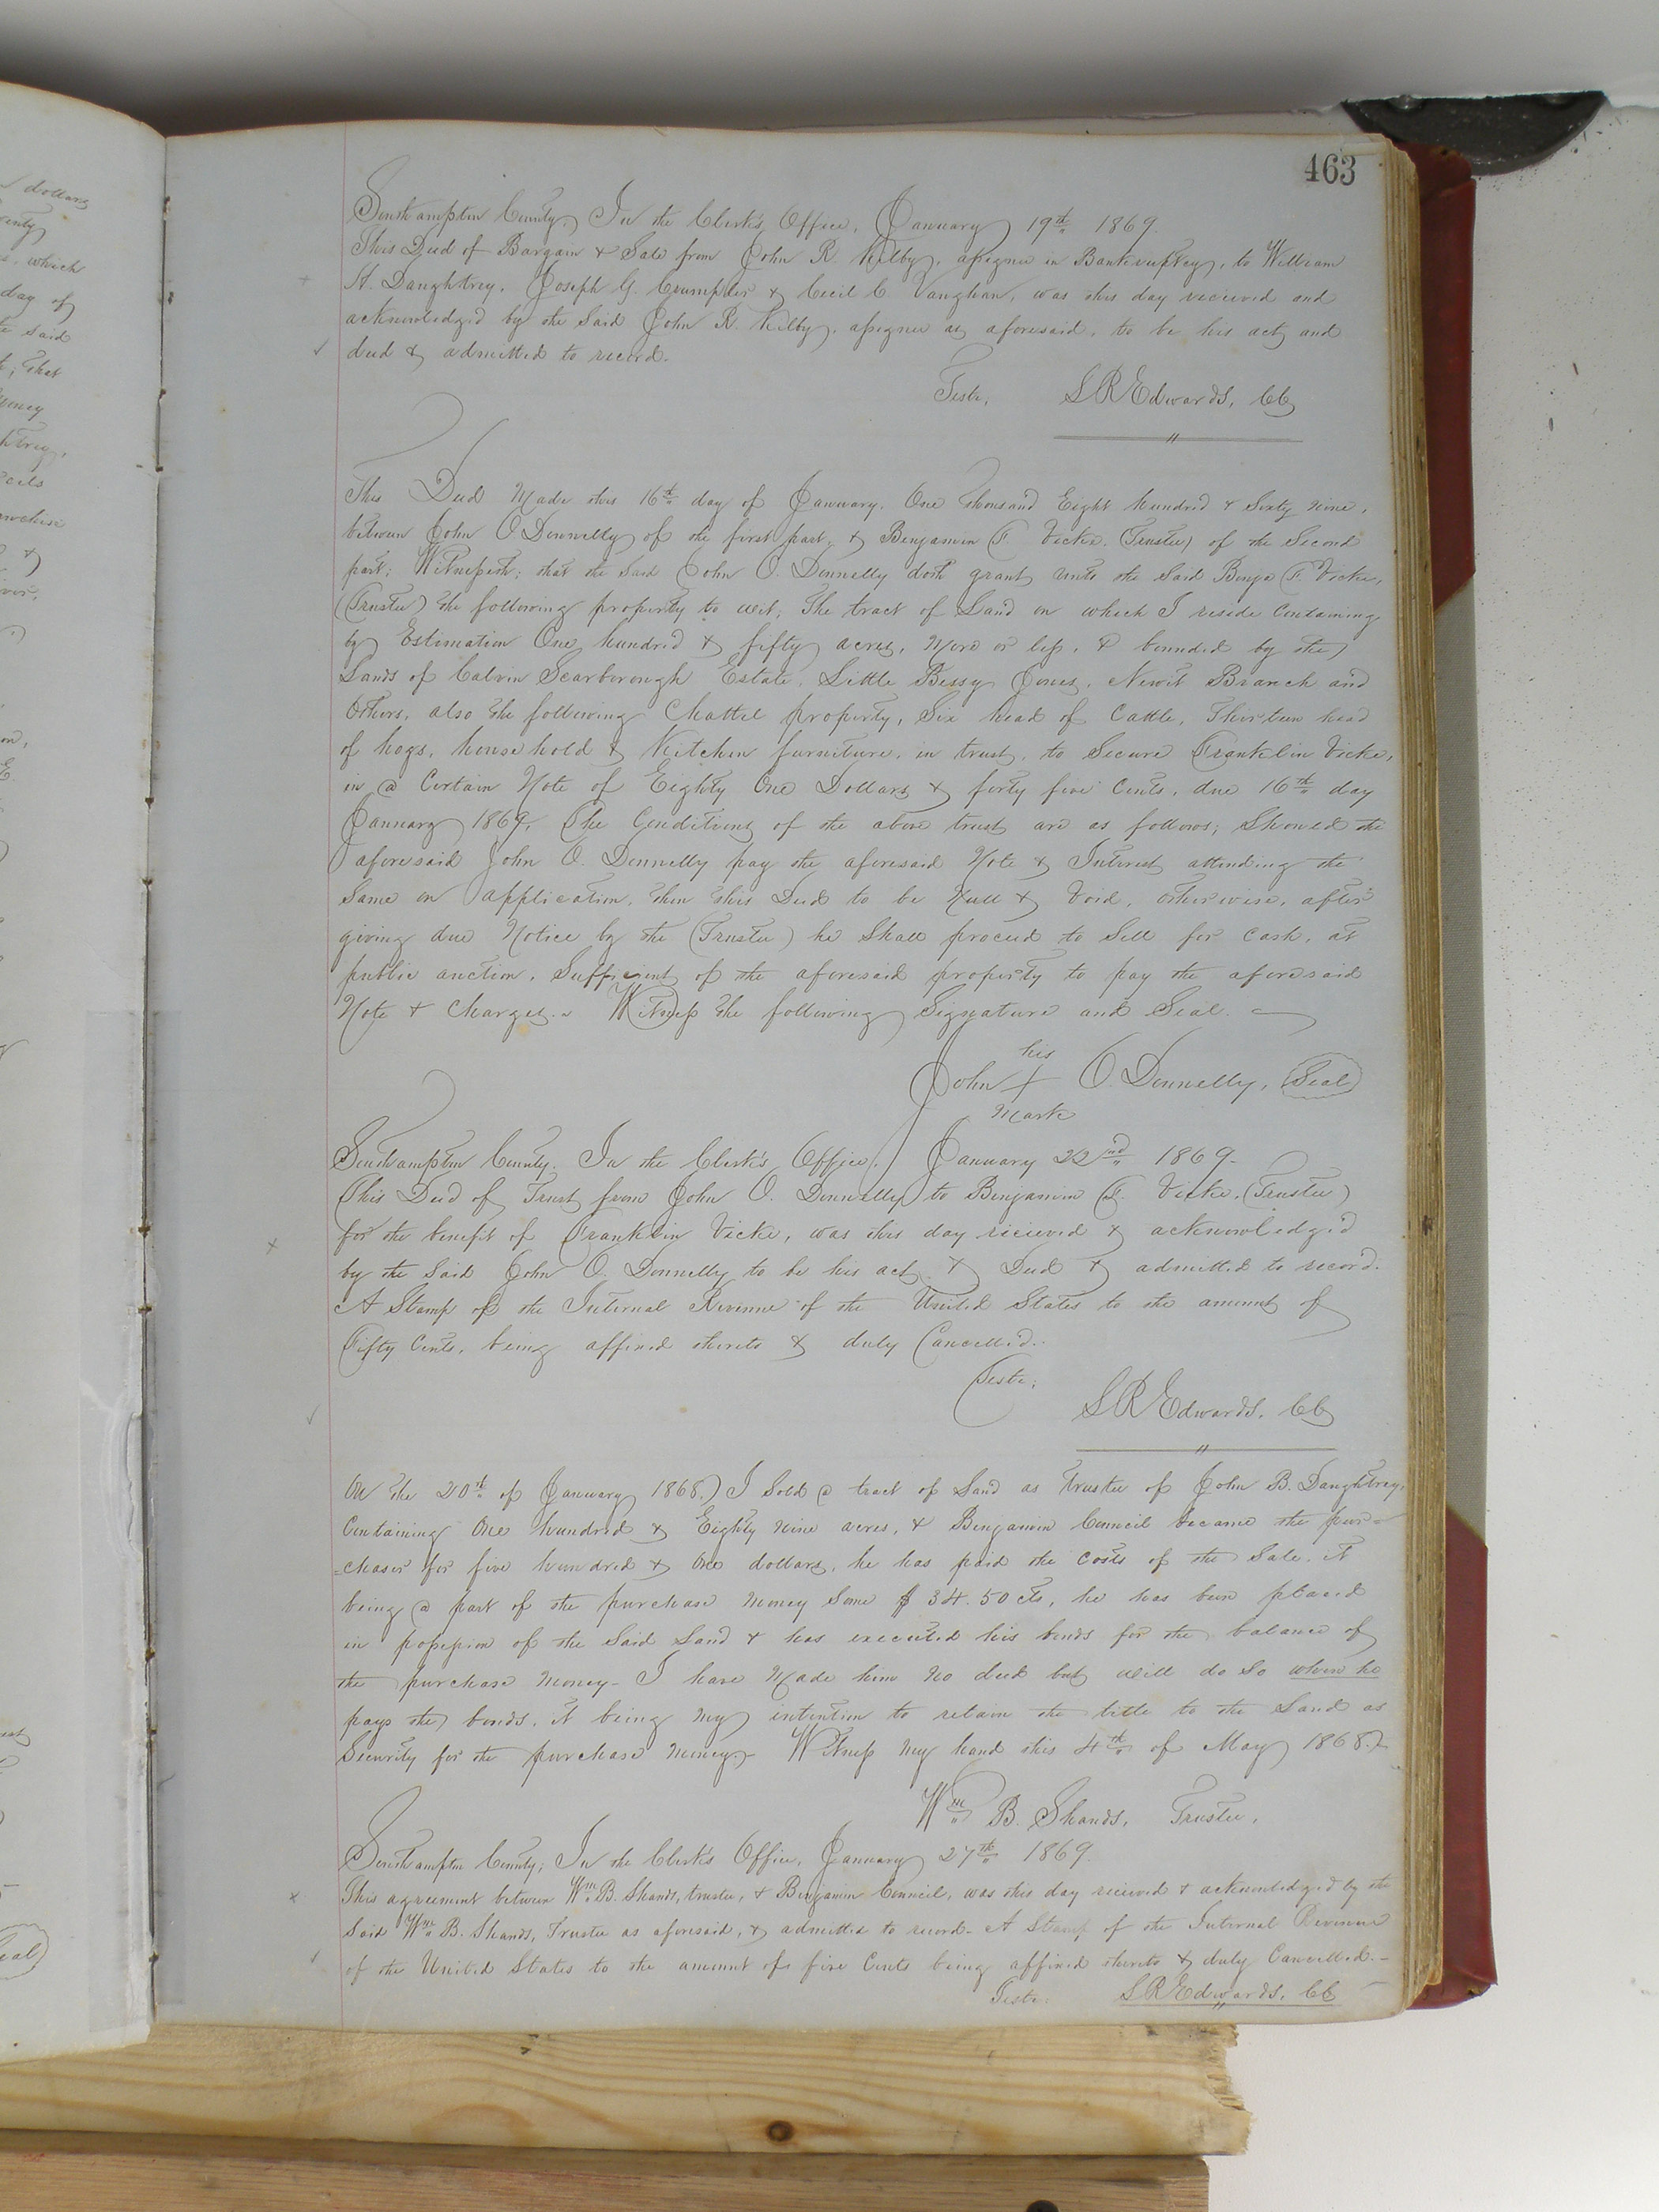 463
Southampton County, In the Clerk's Office, January 19th 1869.
This Deed of Bargain & Sale from John R. Kilby, assignee in Bankruptcy, to William
H. Daughtrey, Joseph G. Crumpler & Cecil C. Vaughan, was this day received and
acknowledged by the Said John R. Kilby, assignee as aforesaid, to be his act and
deed & admitted to record.
Teste, S R Edwards, CC
This Deed Made this 16th day of January, One Thousand Eight hundred & Sixty nine,
between John O. Donnelly of the first part, & Benjamin F. Vicke, (Trustee) of the Second
part; Witnesseth; that the Said John O. Donnelly doth grant unto the Said Benja F. Vicke,
(Trustee) the following property to wit; The tract of Land on which I reside Containing
by Estimation One hundred & fifty acres, More or less, & bounded by the
Lands of Calvin Scarborough Estate, Little Bessy Jones, Newit Branch and
Others, also the following Chattel property, Six head of Cattle, Thirteen head
of hogs, household & Kitchen furniture, in trust, to Secure Franklin Vicke,
in a Certain Note of Eighty One Dollars & forty five Cents, due 16th day
January 1869. The Conditions of the above trust are as follows; Should the
aforesaid John O. Donnelly pay the aforesaid Note & Interest attending the
Same on application, then this Deed to be Null & Void, otherwise, after
giving due Notice by the (Trustee) he Shall proceed to Sell for Cash, at
public auction, Sufficient of the aforesaid property to pay the aforesaid
Note & Charges. Witness the following Signature and Seal.
his
John + O. Donnelly, Seal
Mark
Southampton County. In the Clerk's Office, January 22nd 1869.
This Deed of Trust from John O. Donnelly to Benjamin F. Vicke, (Trustee)
for the benefit of Franklin Vicke, was this day recieved & acknowledged
by the Said John O. Donnelly to be his act & Deed & admitted to record.
A Stamp of the Internal Revenue of the United States to the amount of
Fifty Cents, being affixed thereto & duly Cancelled.
Teste, S R Edwards, CC
On the 20th of January 1868, I Sold a tract of Land as trustee of John B. Daughtrey,
Containing One hundred & Eighty nine acres, & Benjamin Council became the pur=
=chaser for five hundred & One dollars, he has paid the costs of the Sale, it
being a part of the purchase money Some $34.50 cts, he has been placed
in possession of the Said Land & has executed his bonds for the balance of
the purchase money- I have Made him no deed but will do So when he
pays the bonds, it being my intention to retain the title to the Land as
Security for the purchase money- Witness my hand this 4th of May 1868.
Wm B. Shands, Trustee,
Southampton County; In the Clerk's Office, January 27th 1869.
This agreement between Wm B. Shands, trustee, & Benjamin Council, was this day recieved & acknowledged by the
Said Wm B. Shands, Trustee as aforesaid, & admitted to record- A Stamp of the Internal Revenue
of the United States to the amount of five Cents being affixed thereto & duly Cancelled.-
Teste. S R Edwards, CC